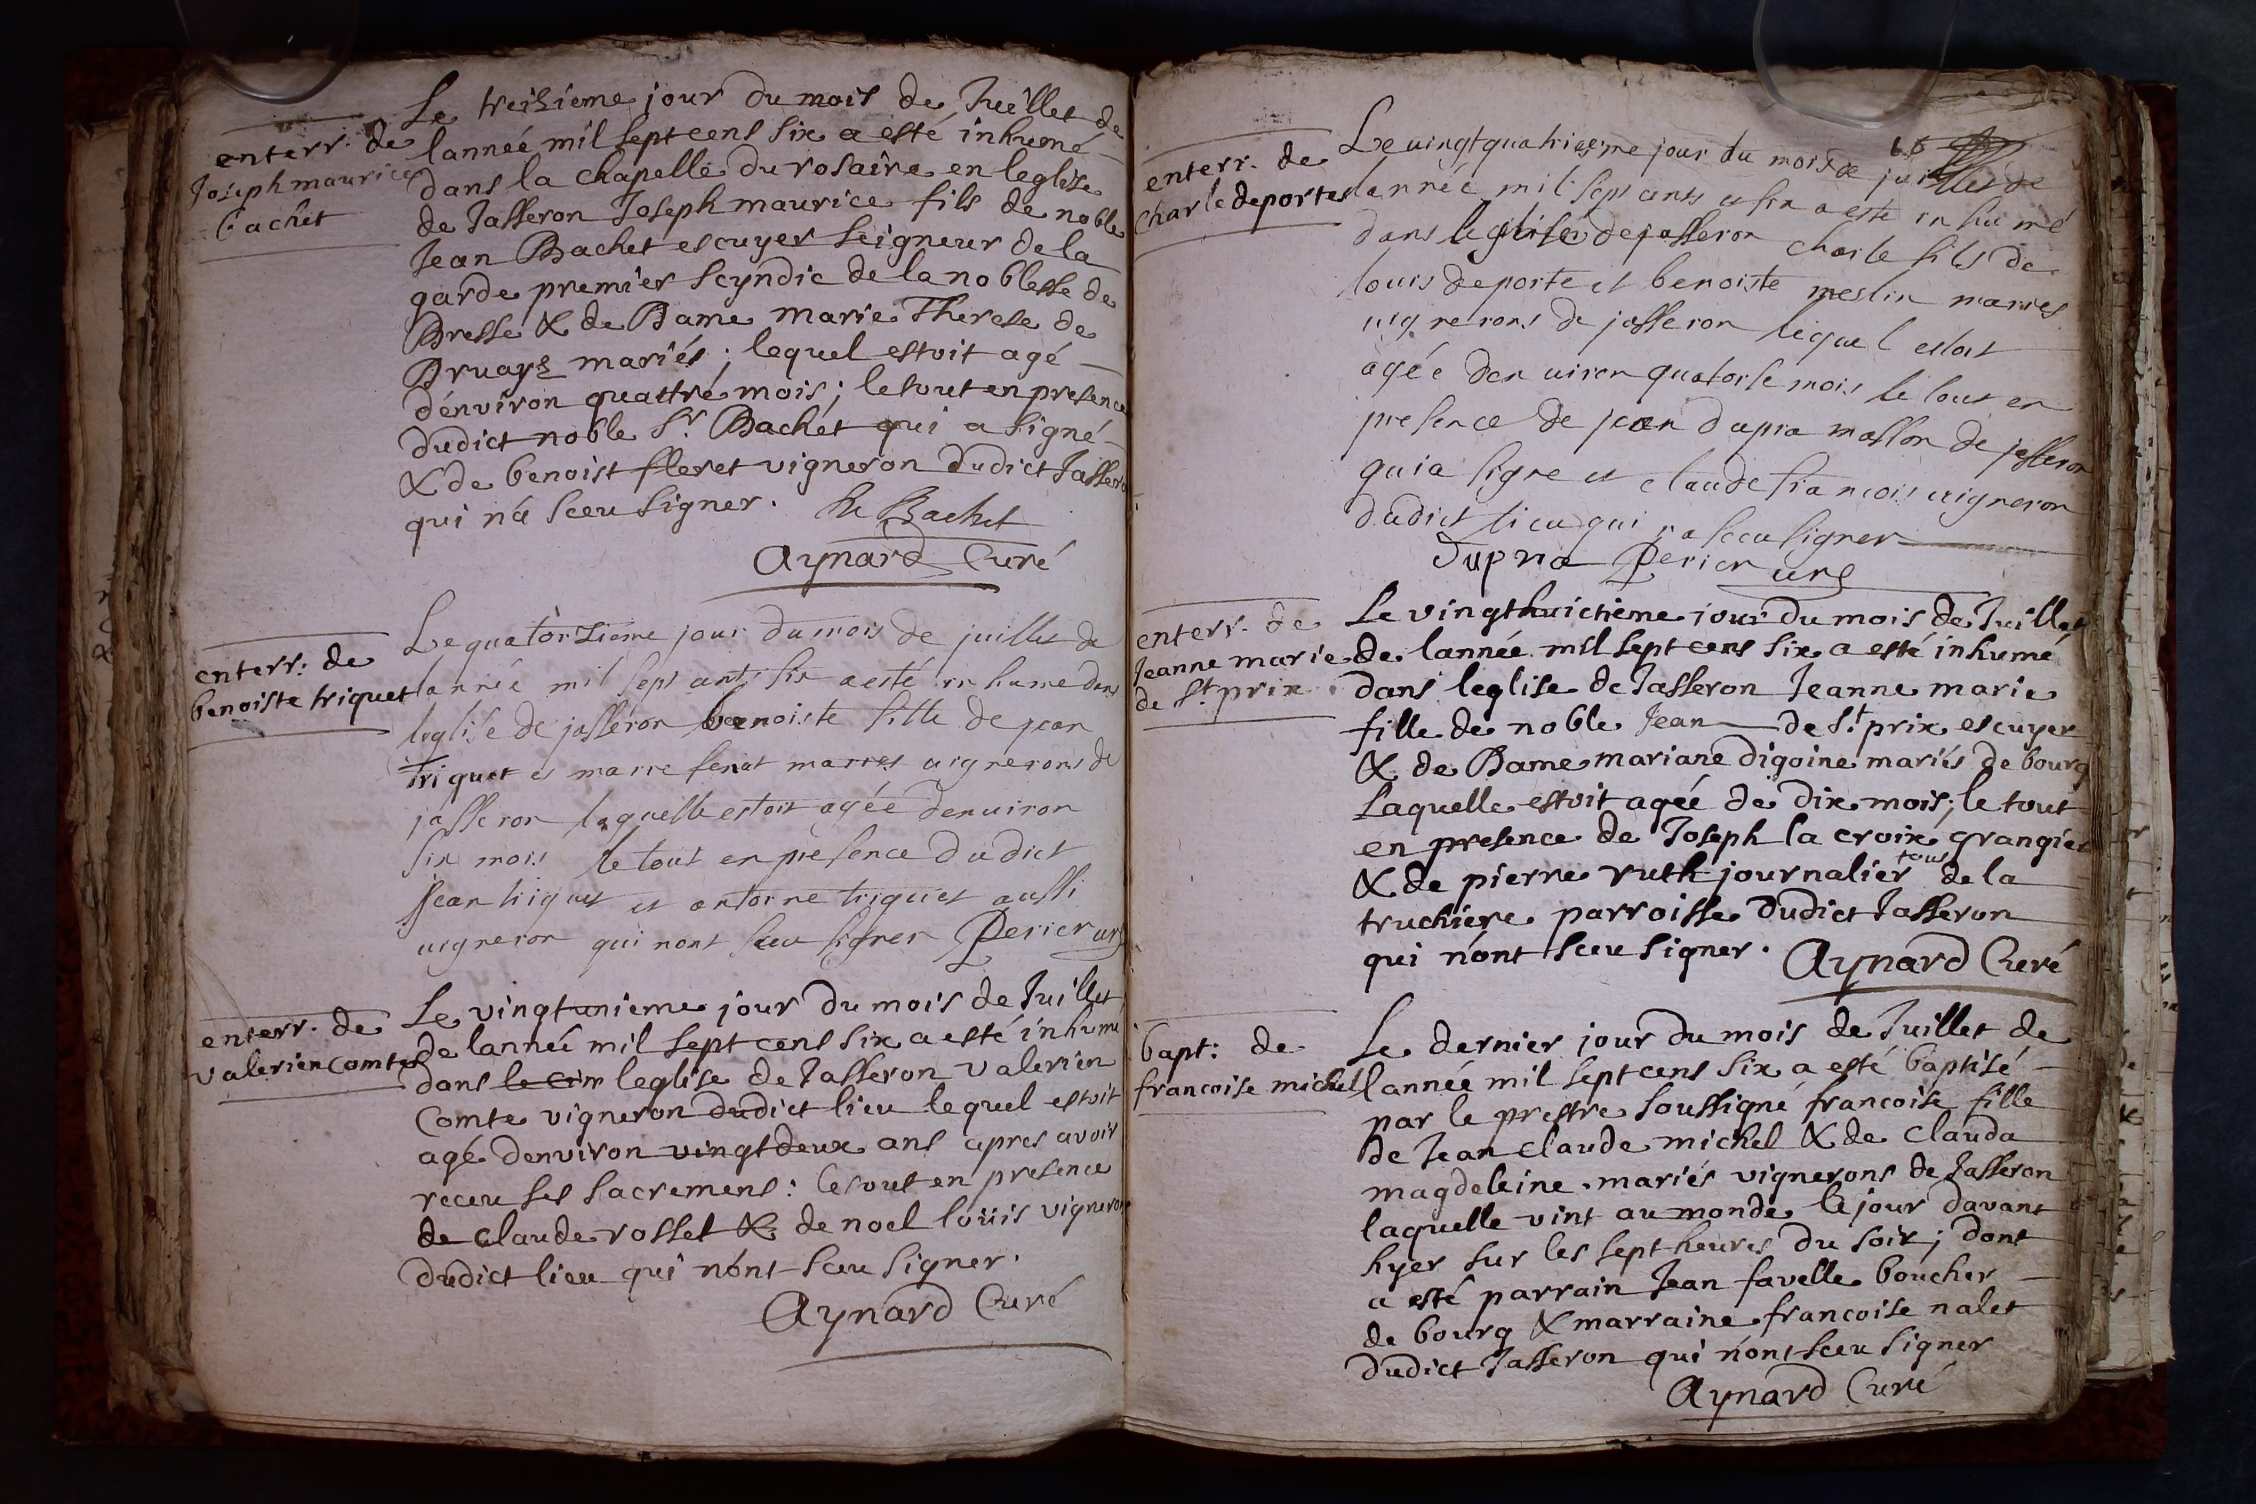 enterr. de
Joseph maurice
bachet
Le treisieme jour du mois de Juillet de
lannéé mil sept cens six a esté inhumé
dans la chapelle du rosaire en leglise
de Jasseron Joseph maurice fils de noble
Jean Bachet escuyer seigneur de la
garde premier scyndic de la noblesse de
Bresse & de Dame marie Therese de
Druays mariés; lequel estoit agé
dénviron quattre mois; le tout en presence
dudict noble Sr. Bachet qui a signé
& de benoist fleret vigneron dudict Jasseron
qui n'a sceu signer. Bachet
Aynard Curé
enterr: de
benoiste triquet
Le quatorsieme jour du mois de juillet de
lannéé mil sept cents six a esté inhume dans
leglise de jasseron benoiste fille de jean
triquet et marie senat maries uignerons de
jasseron laquelle estoit agéé denuiron
six mois le tout en présence dudict
jean triquet et antoine triquet aussi
uigneron qui nont sceu signer Perier curé
enterr. de
valerien comte
Le vingtunieme jour du mois de Juillet
de lannéé mil sept cens six a esté inhumé
dans le cim leglise de Jasseron valerien
Comte vigneron dudict lieu lequel estoit
agé denviron vingtdeux ans apres avoir
receu ses sacremens: le tout en presence
de claude rosset & de noel loüis vigneron
dudict lieu qui nónt sceu signer.
Aynard Curé
68
enterr. de
charle deportes
Le uingtquatriesme jour du mois de juillet de
lannéé mil sept cents et six a esté inhumé
dans leglise de jasseron charle fils de
louis deporte et benoiste meslin maries
uignerons de jasseron lequel estoit
agéé denuiron quatorse mois le tout en
presence de jean dupra masson de jasseron
qui a signe et claude francois uigneron
dudict lieu qui na sceu signer
Dupra Perier curé
enterr. de
Jeanne marie
de St. prix
Le vingthuictieme jour du mois de Juillet
de lannéé mil sept cens six a esté inhumé
dans leglise de Jasseron Jeanne marie
fille de noble Jean de St. prix escuyer
& de Dame mariane digoine mariés de bourg
laquelle estoit agéé de dix mois; le tout
en presence de Joseph la croix grangier
& de pierre ruth journalier tous de la
truchiere parroisse dudict Jasseron
qui nónt sceu signer. Aynard Curé
bapt: de
francoise michel
Le dernier jour du mois de Juillet de
lannéé mil sept cens six a esté baptisé
par le prestre soussigné francoise fille
de Jean claude michel & de clauda
magdeleine mariés vignerons de Jasseron
laquelle vint au monde le jour davant
hyer sur les sept heures du soir; dont
a esté parrain Jean favelle boucher
de bourg & marraine francoise nalet
dudict Jasseron qui nónt sceu signer
Aynard Curé